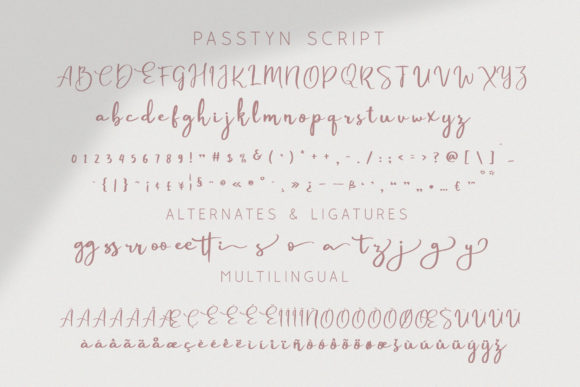 PASSTYN SCRIPT
ABCDEFGHIJKLMNOPQRSTUVWXYZ
abcdefghijklmnopqrstuvwxyz
0123456789!"#$%&(*)*++,-./:;<=>?@[\]_
`{|}~¡¢£¥¦§¨©«®¯°±»¿–—ß‘’“”„•…€™
ALTERNATES & LIGATURES
gg ss rr oo ee tt i s o a t z j g y
MULTILINGUAL
ÀÁÂÃÄÅÆÇÈÉÊËÌÍÎÏÑÒÓÔÕÖØŒŠÙÚÛÜ
àáâãäåæçèéêëìíîïñòóôõöøœšùúûüýÿž